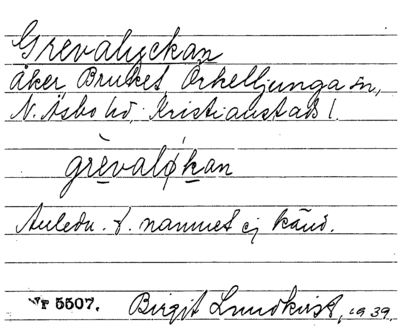 Grevalyckan
åker, Bruket, Örkelljunga sn,
N. Åsbo hd, Kristianstads l.
grèvalø̀kan
Anledn. t. namnet ej känd.
5507. Birgit Lundkvist, 1939.